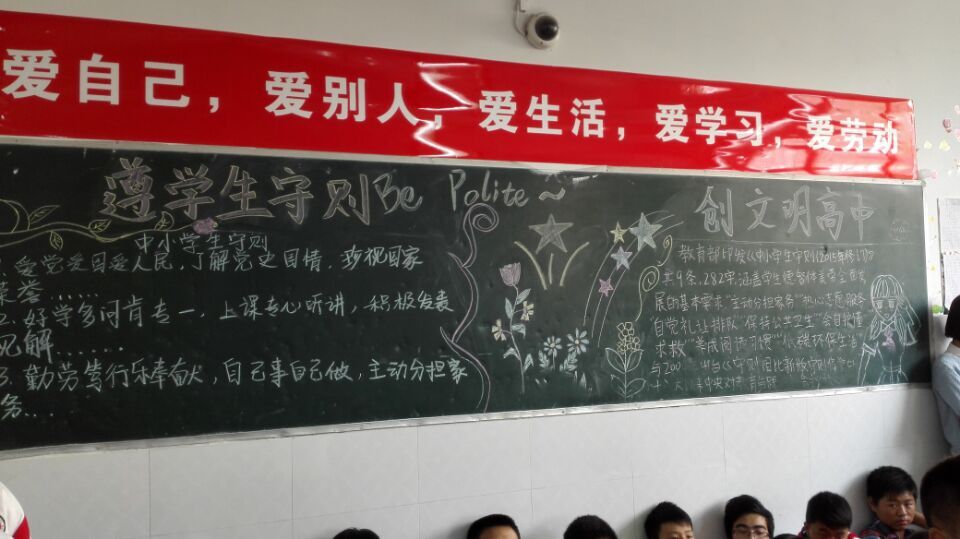 爱自己，爱别人，爱生活，爱学习，爱劳动
遵学生守则Be Polite~
中小学生守则
1.爱党爱国爱人民，了解党史国情，珍视国家
荣誉……
2.好学多问肯专一，上课专心听讲，积极发表
见解……
3.勤劳笃行乐奉献，自己事自己做，主动分担家
务……
创文明高中
教育部印发《中小学生守则(2015年修订)》
共9条，282字，涵盖学生德智体美全面发
展的基本要求，"主动分担家务""热心志愿服务"
"自觉礼让排队""保持公共卫生""会自护懂
求救""养成阅读习惯""小碳环保生活